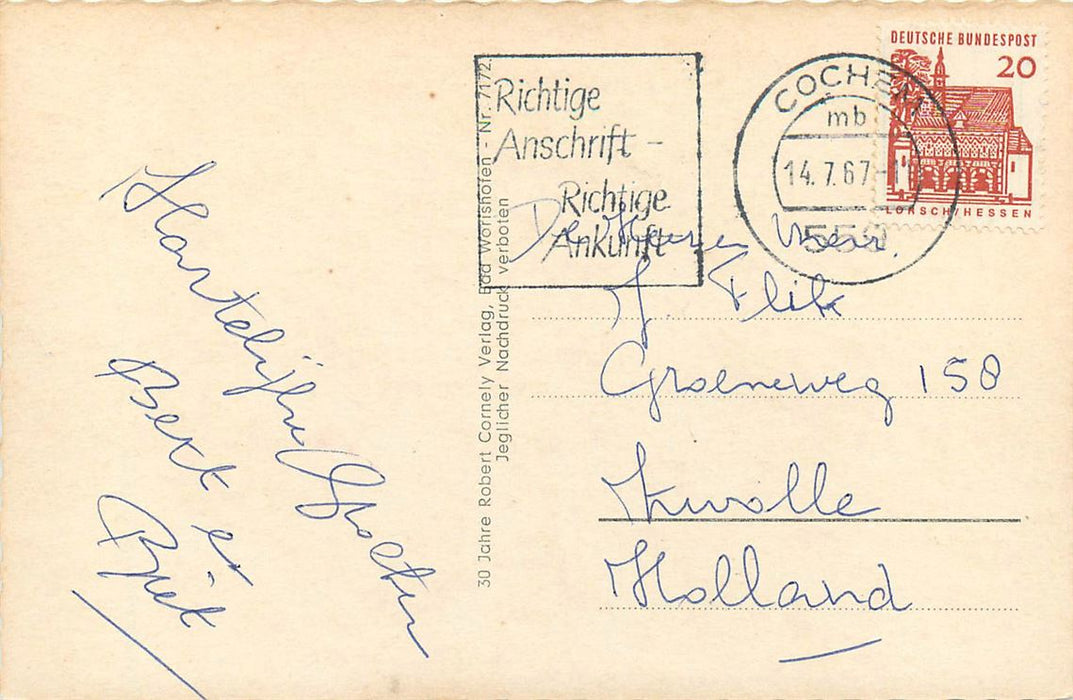 Hartelijke Groeten
Bert en
Riek
30 Jahre Robert Cornely Verlag, Bad Wörishofen - Nr. 7172
Jeglicher Nachdruck verboten
Richtige
Anschrift -
Richtige
Ankunft
COCHEM
mb
14.7.67
559
DEUTSCHE BUNDESPOST
20
LORSCH/HESSEN
De Heer
J. Flik
Groeneweg 158
Zwolle
Holland